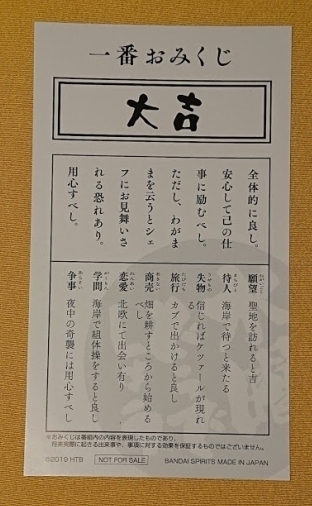 一番おみくじ
大吉
全体的に良し。
安心して己の仕
事に励むべし。
ただし、わがま
まを云うとシェ
フにお見舞いさ
れる恐れあり。
用心すべし。
願望 聖地を訪れると吉
待人 海岸で待つと来たる
失物 信じればケツァールが現れ
る
旅行 カブで出かけると良し
商売 畑を耕すところから始める
べし
恋愛 北欧にて出会い有り
学問 海岸で組体操をすると良し
争事 夜中の奇襲には用心すべし
※おみくじは番組内の内容を表現したものであり、
将来実際に起きる出来事や、事項に対する効果を保証するものではございません。
©2019 HTB NOT FOR SALE BANDAI SPIRITS MADE IN JAPAN